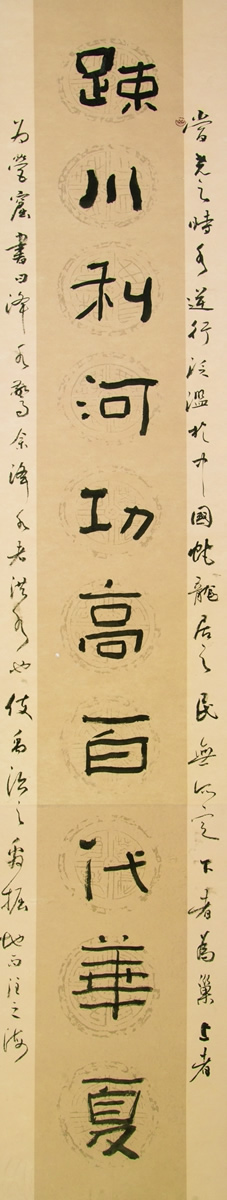 當堯之時水逆行氾濫於中國蛇龍居之民無所定下者為巢上者
踈川利河功高百代華夏
為營窟書曰洚水警余洚水者洪水也使禹治之禹掘地而注之海